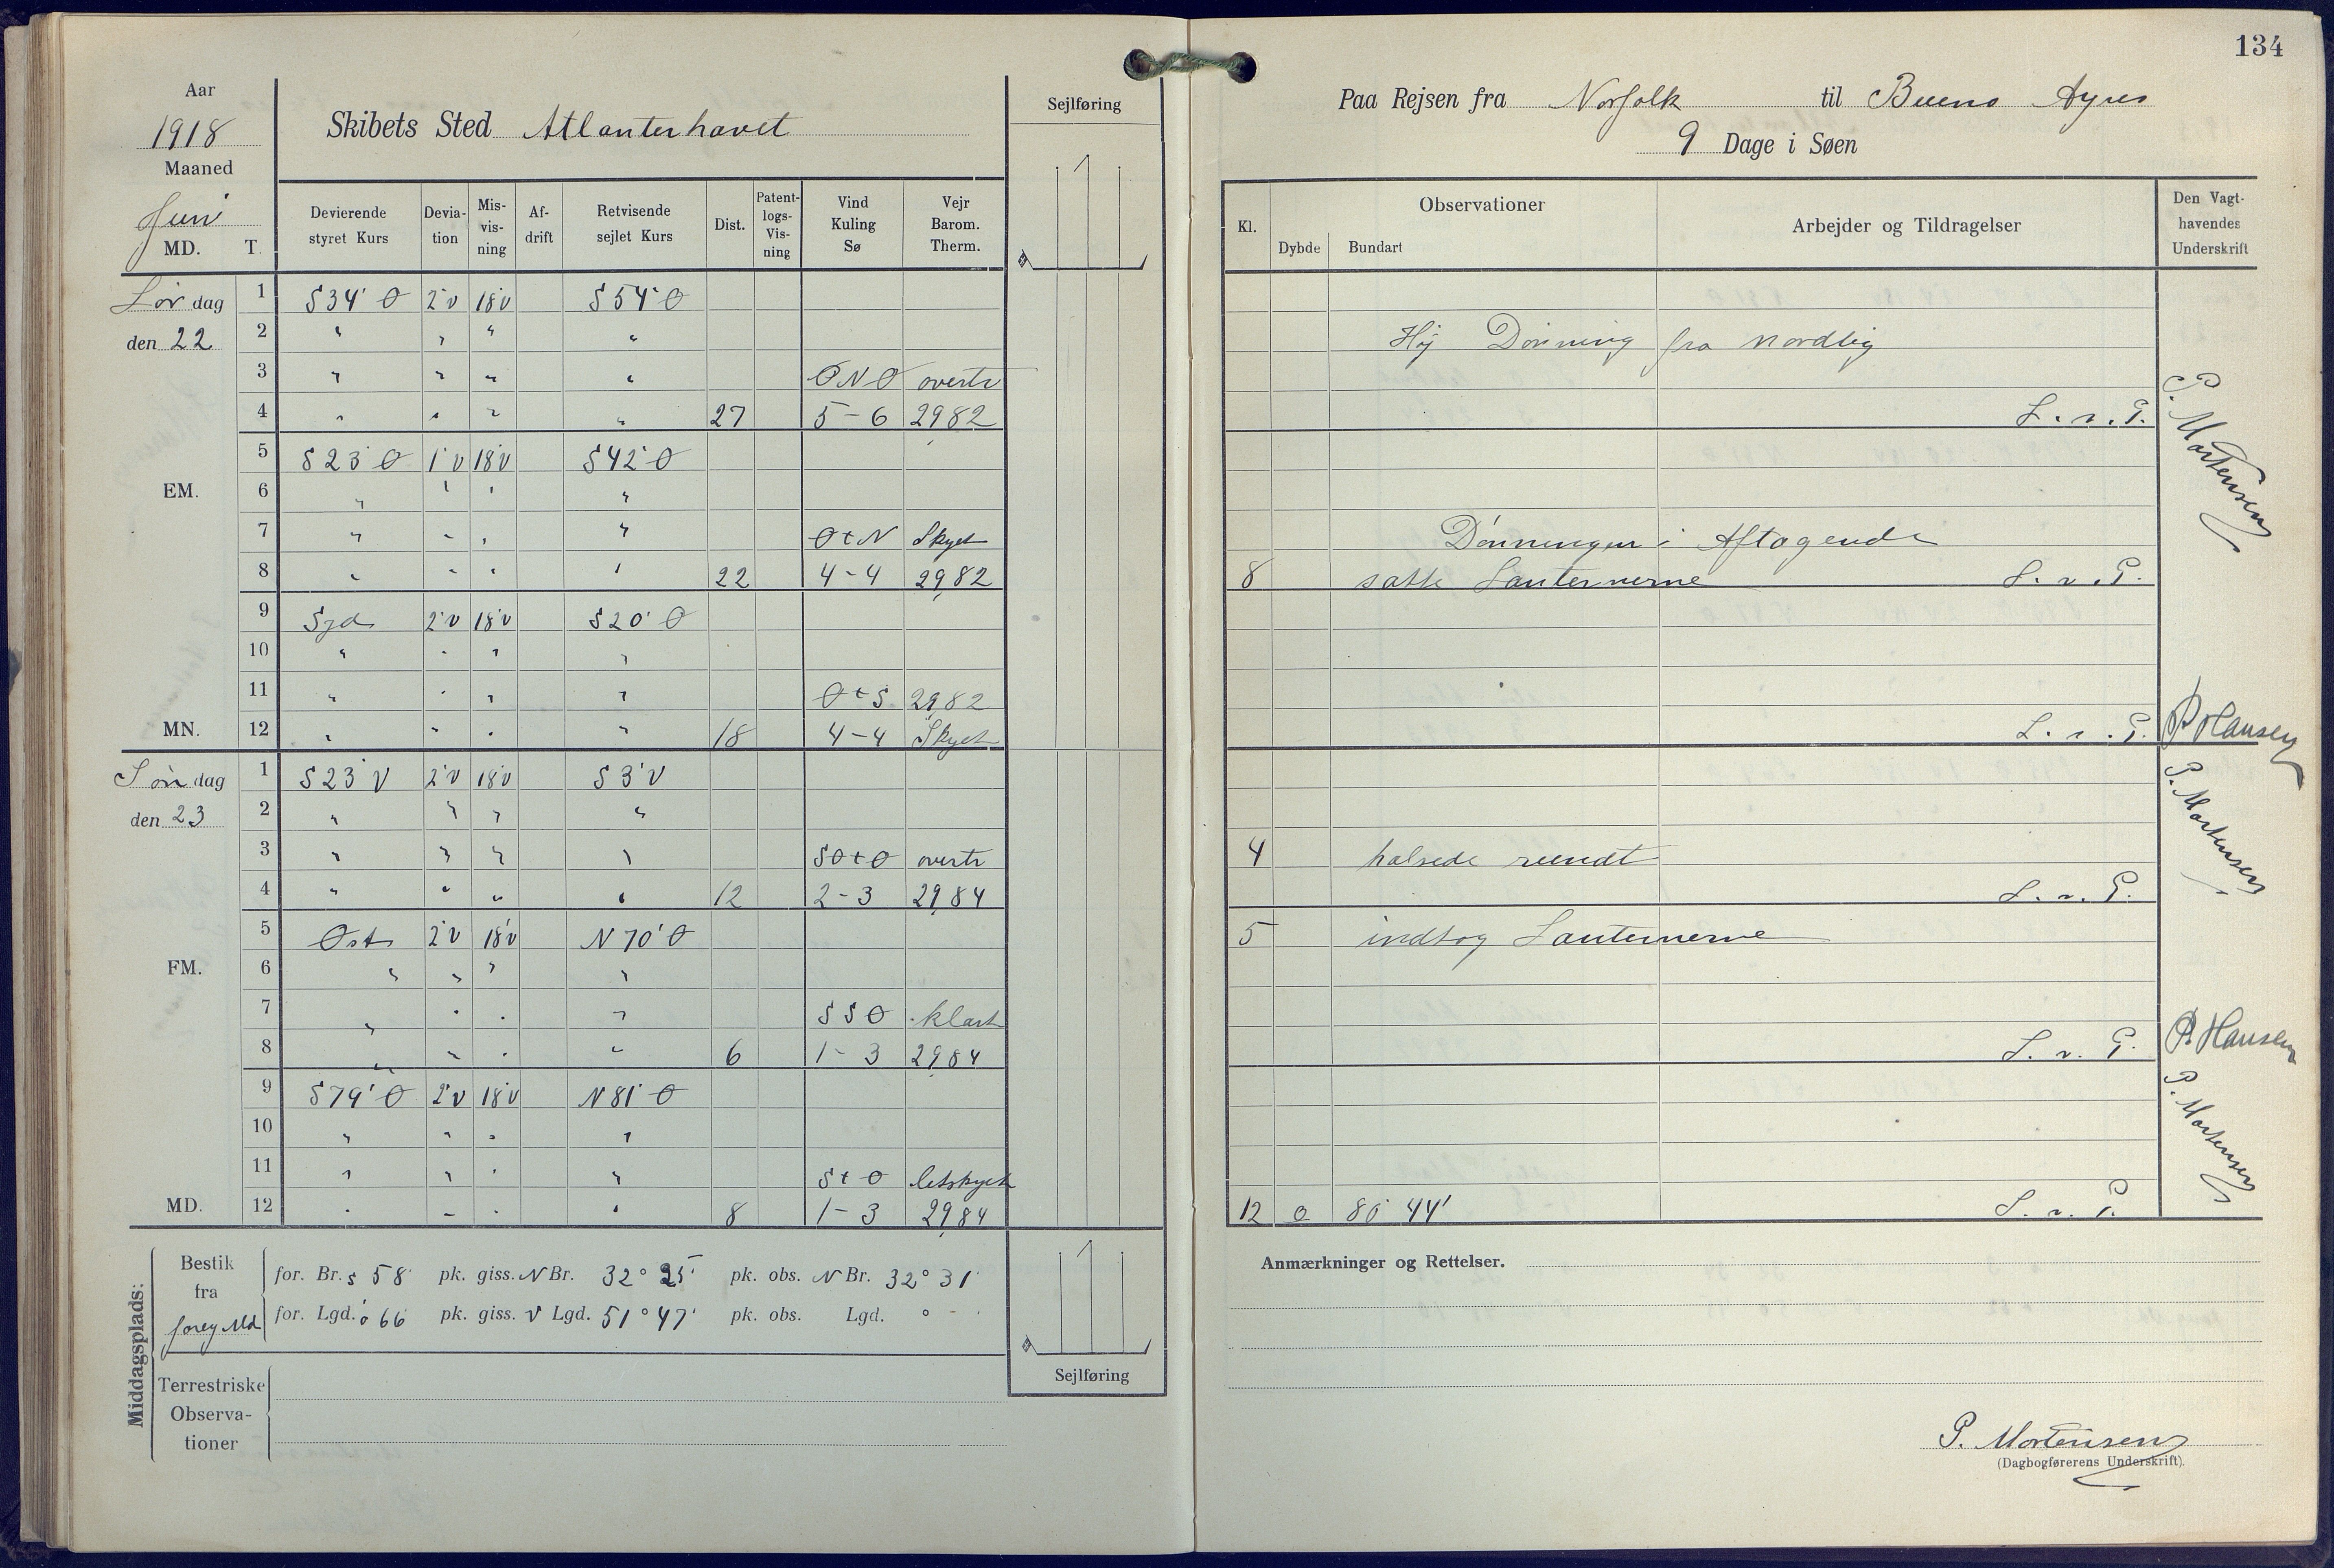 134
Aar
1918
Maaned
Juni
MD. T.
Skibets Sted Atlanterhavet
Sejlføring
Devierende styret Kurs
Deviation
Misvisning
Afdrift
Retvisende sejlet Kurs
Dist.
Patentlogs-Visning
Vind Kuling Sø
Vejr Barom. Therm.
Lør dag 1 S34°Ø 2°V 18°V S54°Ø
den 22 2 " " " "
3 " " " " ØNØ overtr
4 " " " " 27 5-6 29,82
5 S23°Ø 1°V 18°V S42°Ø
EM. 6 " " " "
7 " " " " ØtN Skyet
8 " " " " 22 4-4 29,82
9 Syd 2°V 18°V S20°Ø
10 " " " "
11 " " " " ØtS 29,82
MN. 12 " " " " 18 4-4 Skyet
Søn dag 1 S23°V 2°V 18°V S3°V
den 23 2 " " " "
3 " " " " SØtØ overtr
4 " " " " 12 2-3 29,84
5 Øst 2°V 18°V N70°Ø
FM. 6 " " " "
7 " " " " SSØ klart
8 " " " " 6 1-3 29,84
9 S79°Ø 2°V 18°V N81°Ø
10 " " " "
11 " " " " StØ letskyet
MD. 12 " " " " 8 1-3 29,84
Middagsplads:
Bestik fra foreg Md
for. Br. S 58' pk. giss. N Br. 32° 25' pk. obs. N Br. 32° 31'
for. Lgd. ö 66 pk. giss. V Lgd. 51° 47' pk. obs. Lgd. ° - '
Terrestriske Observationer
Sejlføring
Paa Rejsen fra Norfolk til Bueno Ayres
9 Dage i Søen
Kl.
Observationer
Dybde Bundart
Arbejder og Tildragelser
Den Vagthavendes Underskrift
Høj Dønning fra nordlig
L. v. P.
P. Mortensen
Dønningen i Aftagende
8 satte Lanternerne L. v. P.
L. v. P. P Hansen
4 halsede rundt
L. v. P.
P. Mortensen
5 indtog Lanternerne
L. v. P. P Hansen
P. Mortensen
12 o 80° 44' L. v. P.
Anmærkninger og Rettelser.
P. Mortensen
(Dagbogførerens Underskrift).